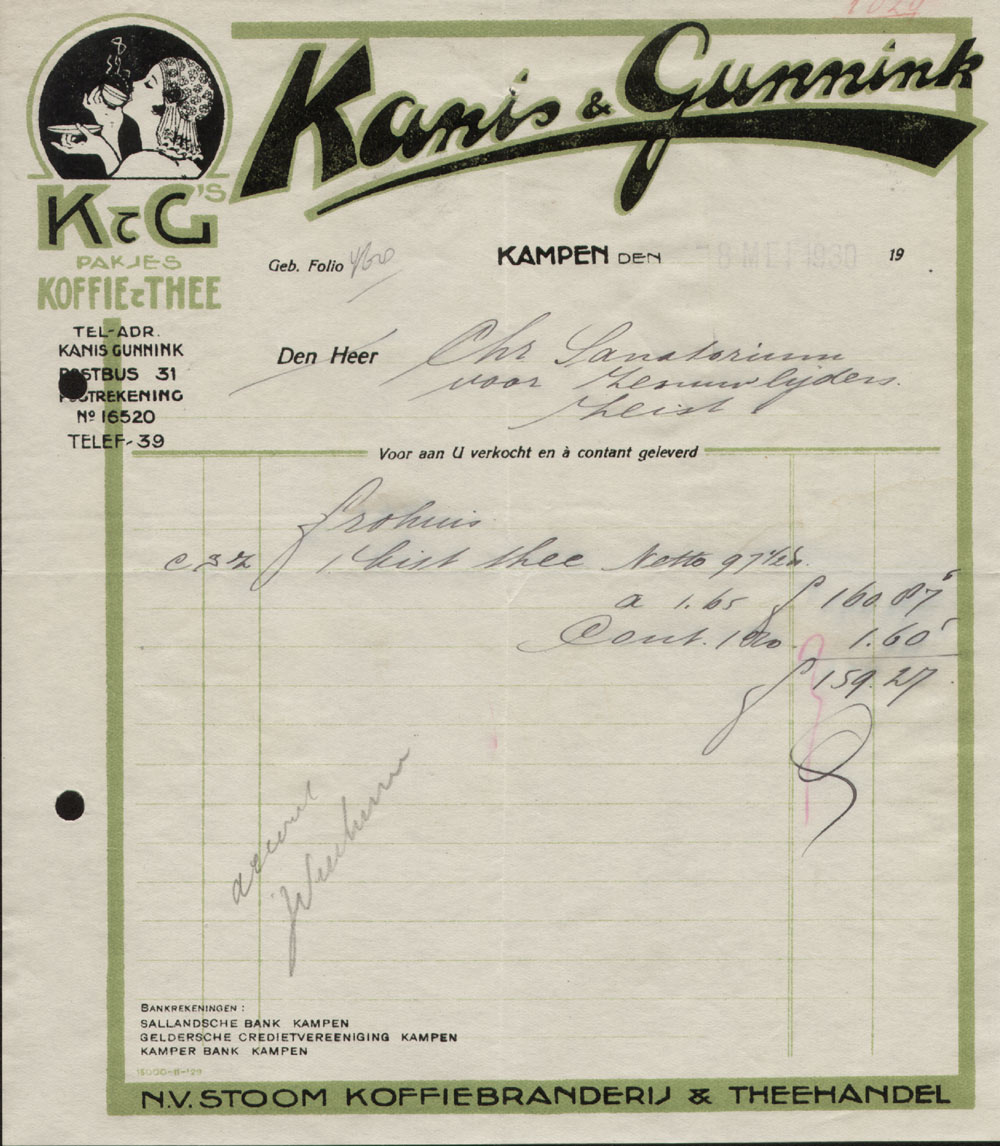 Kanis & Gunnink
K & G's
PAKJES
KOFFIE & THEE
TEL-ADR.
KANIS GUNNINK
POSTBUS 31
POSTREKENING
No 16520
TELEF-39
Geb. Folio
KAMPEN DEN 8 MEI 1930 19
Den Heer Chr Sanatorium
voor Zenuwlijders.
Zeist
Voor aan U verkocht en à contant geleverd
frohuis
1 kist thee Netto 97 1/2
a 1.65 f 160.87⁵
Cont. 1% 1.60⁵
f 159.27
BANKREKENINGEN:
SALLANDSCHE BANK KAMPEN
GELDERSCHE CREDIETVEREENIGING KAMPEN
KAMPER BANK KAMPEN
15000-11-'29
N.V. STOOM KOFFIEBRANDERIJ & THEEHANDEL